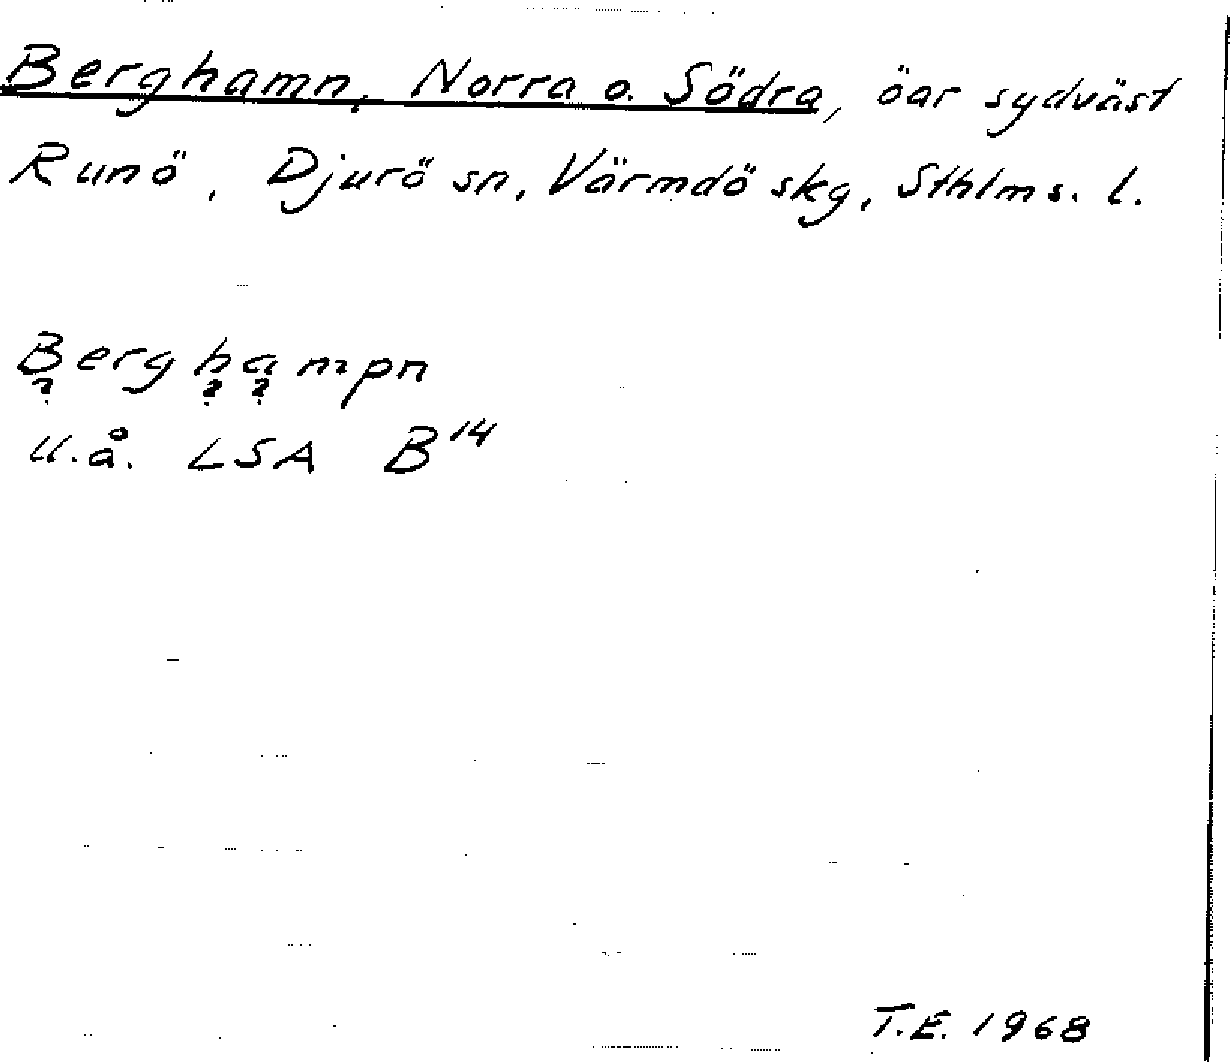 Berghamn, Norra o. Södra, öar sydväst
Runö, Djurö sn, Värmdö skg, Sthlms. l.
Berghampn
? ? ?
U.å. LSA B14
T.E. 1968